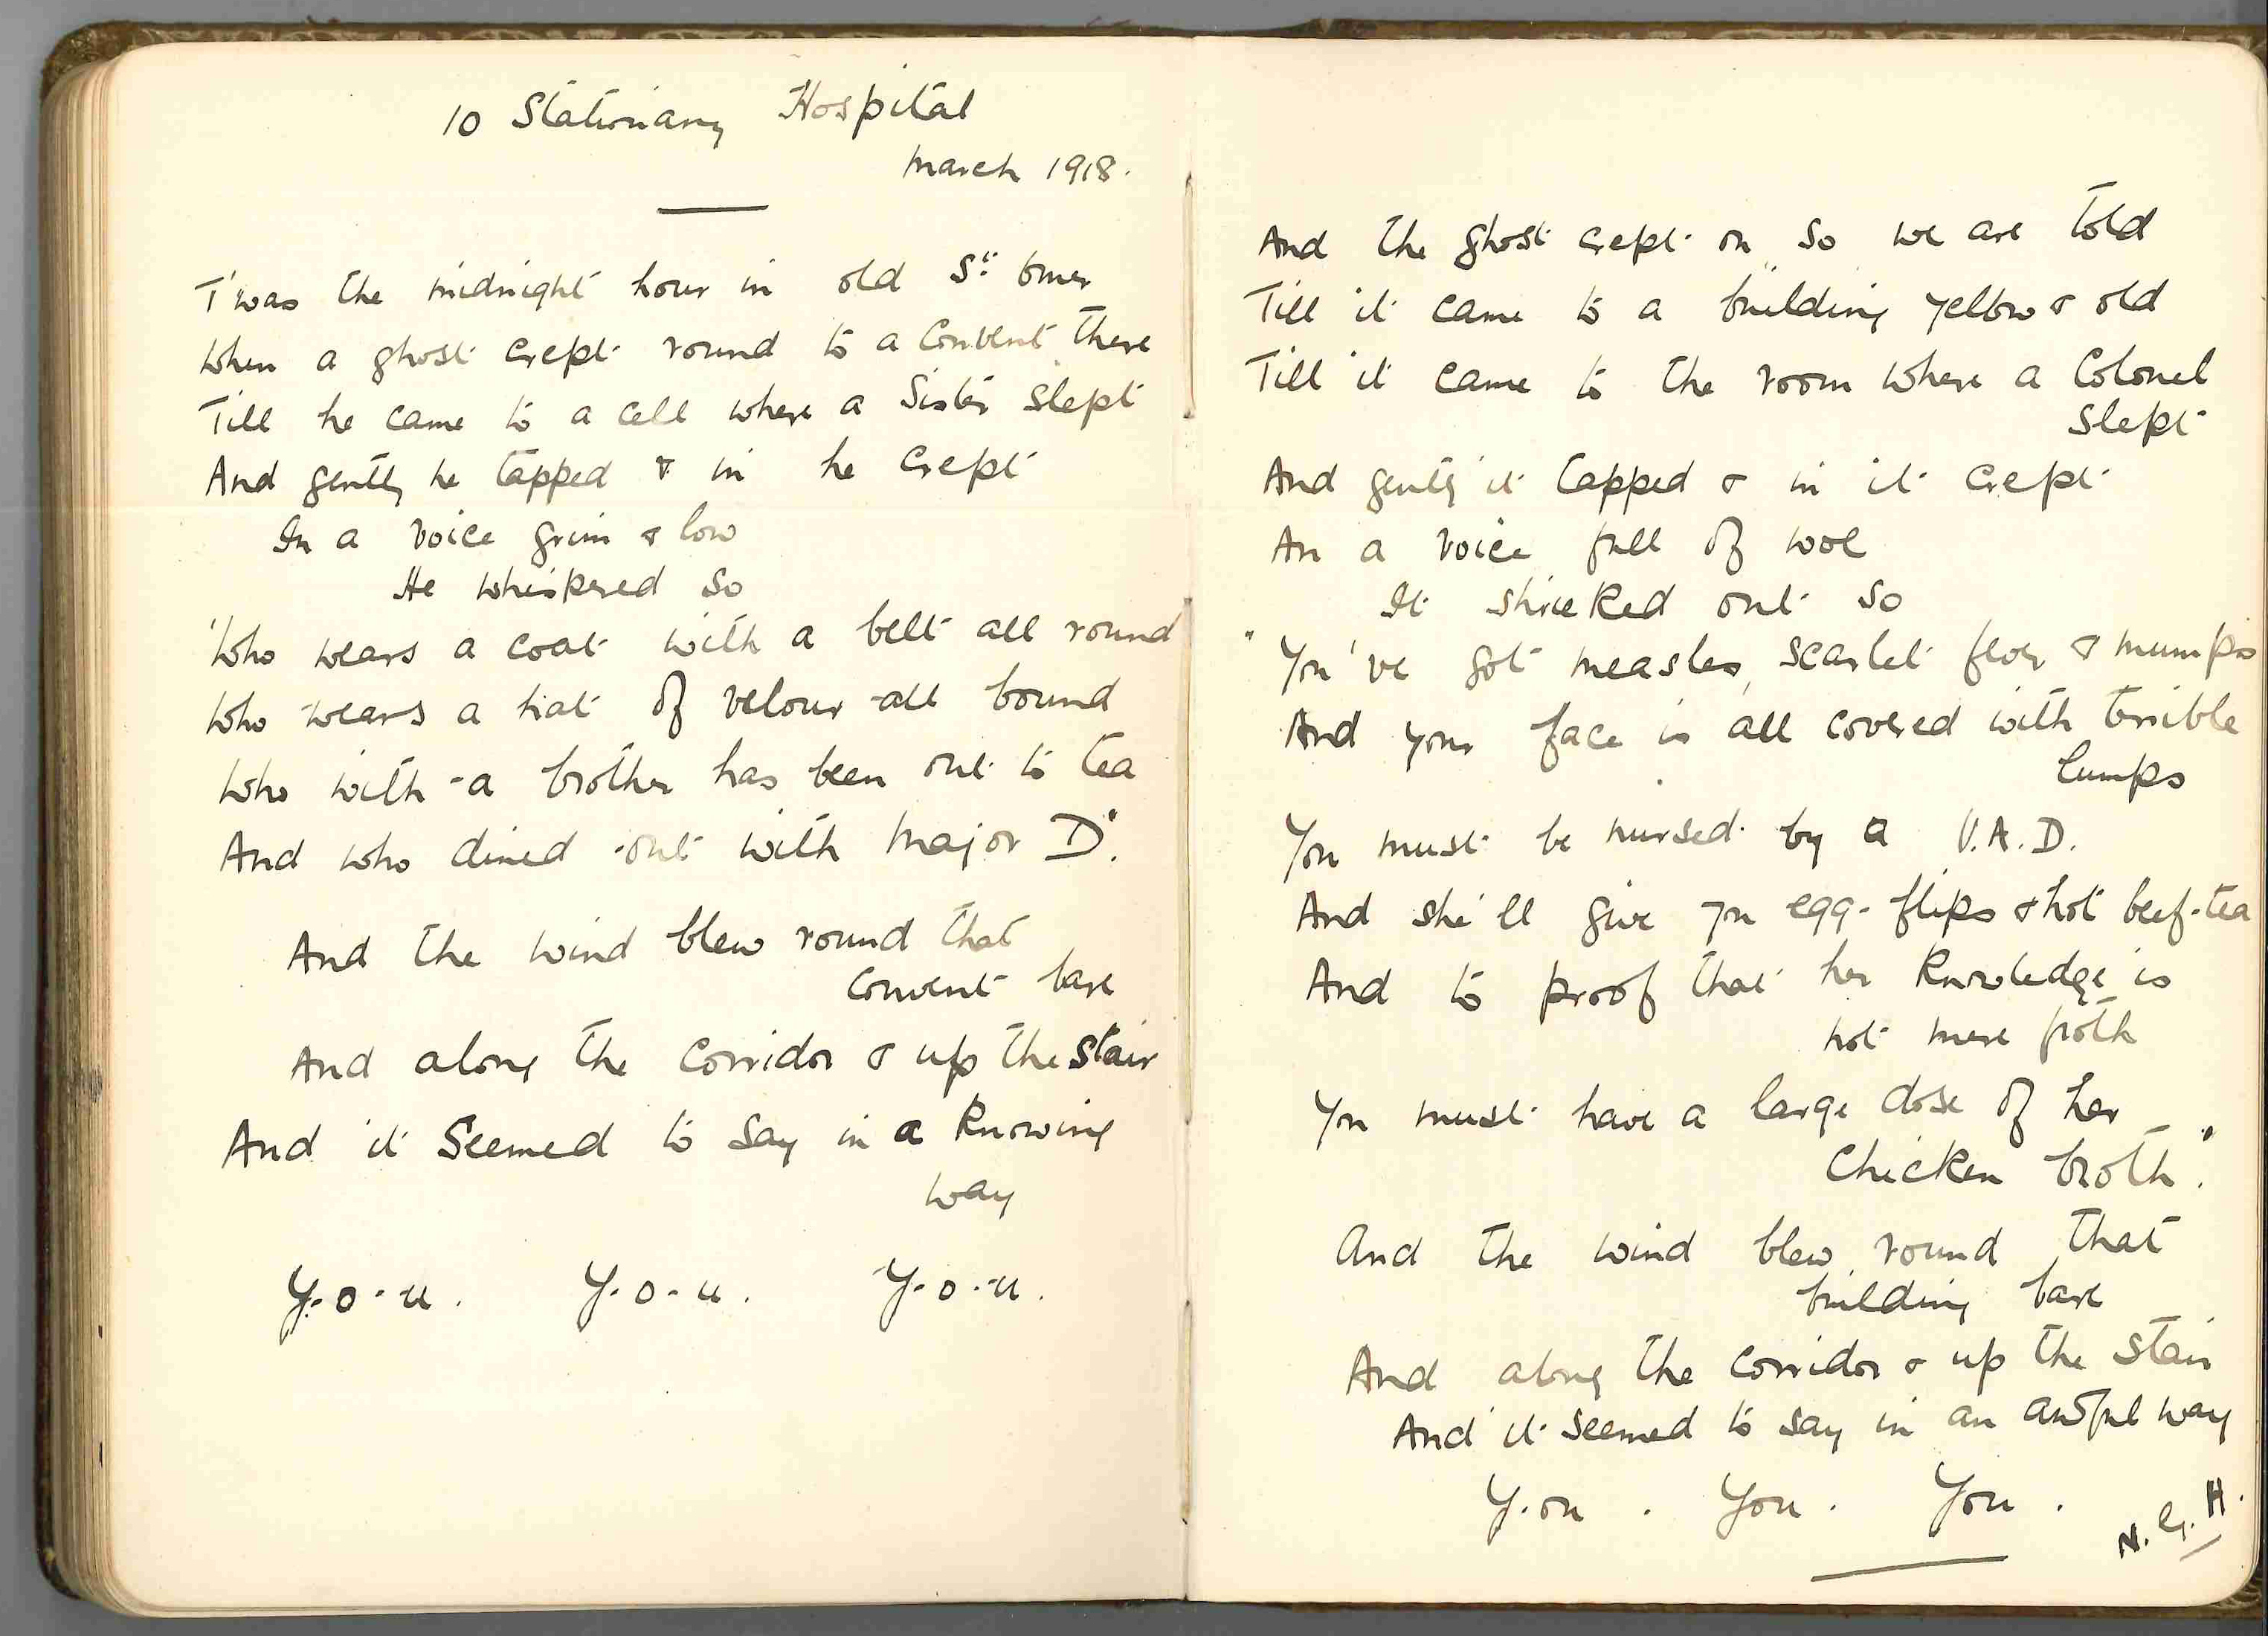 10 Stationary Hospital
March 1918.
T'was the midnight hour in old St Omer
When a ghost crept round to a Convent there
Till he came to a cell where a Sister slept
And gently he tapped & in he crept
In a voice grim & low
He whispered so
"Who wears a coat with a belt all round
Who wears a hat of velour all bound
Who with a brother has been out to tea
And who dined out with Major D".
And the wind blew round that
Convent bare
And along the corridor & up the stair
And it seemed to say in a knowing
way
Y-o-u. Y-o-u. Y-o-u.
And the ghost crept on so we are told
Till it came to a building yellow & old
Till it came to the room where a Colonel
slept
And gently it tapped & in it crept
An a voice full of woe
It shrieked out so
"You've got measles, scarlet fever & mumps
And your face is all covered with terrible
lumps
You must be nursed by a V.A.D.
And she'll give you egg-flips & hot beef-tea
And to proof that her knowledge is
not mere froth
You must have a large dose of her
Chicken broth".
And the wind blew round that
building bare
And along the corridor & up the stair
And it seemed to say in an awful way
Y.ou . You . You .
N. G. H.